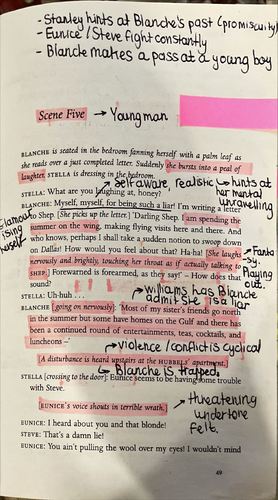 - Stanley hints at Blanche's past (promiscuity)
- Eunice / Steve fight constantly
- Blanche makes a pass at a young boy
Scene Five → Young man
BLANCHE is seated in the bedroom fanning herself with a palm leaf as
she reads over a just completed letter. Suddenly she bursts into a peal of
laughter. STELLA is dressing in the bedroom.
→ self aware, realistic ↳ hints at her mental unravelling
STELLA: What are you laughing at, honey?
BLANCHE: Myself, myself, for being such a liar! I'm writing a letter
to Shep. [She picks up the letter.] 'Darling Shep. I am spending the
summer on the wing, making flying visits here and there. And
who knows, perhaps I shall take a sudden notion to swoop down
on Dallas! How would you feel about that? Ha-ha! [She laughs
nervously and brightly, touching her throat as if actually talking to
SHEP.] Forewarned is forearmed, as they say!' – How does that
sound?
Glamourising herself
→ Fantasy. Playing out.
STELLA: Uh-huh . . .
→ williams has Blanche admit she is a liar
BLANCHE [going on nervously]: 'Most of my sister's friends go north
in the summer but some have homes on the Gulf and there has
been a continued round of entertainments, teas, cocktails, and
luncheons –'
→ violence / conflict is cyclical
A disturbance is heard upstairs at the HUBBELS' apartment.
↳ Blanche is trapped.
STELLA [crossing to the door]: Eunice seems to be having some trouble
with Steve.
[EUNICE's voice shouts in terrible wrath.]
→ threatening undertone felt.
EUNICE: I heard about you and that blonde!
STEVE: That's a damn lie!
EUNICE: You ain't pulling the wool over my eyes! I wouldn't mind
49